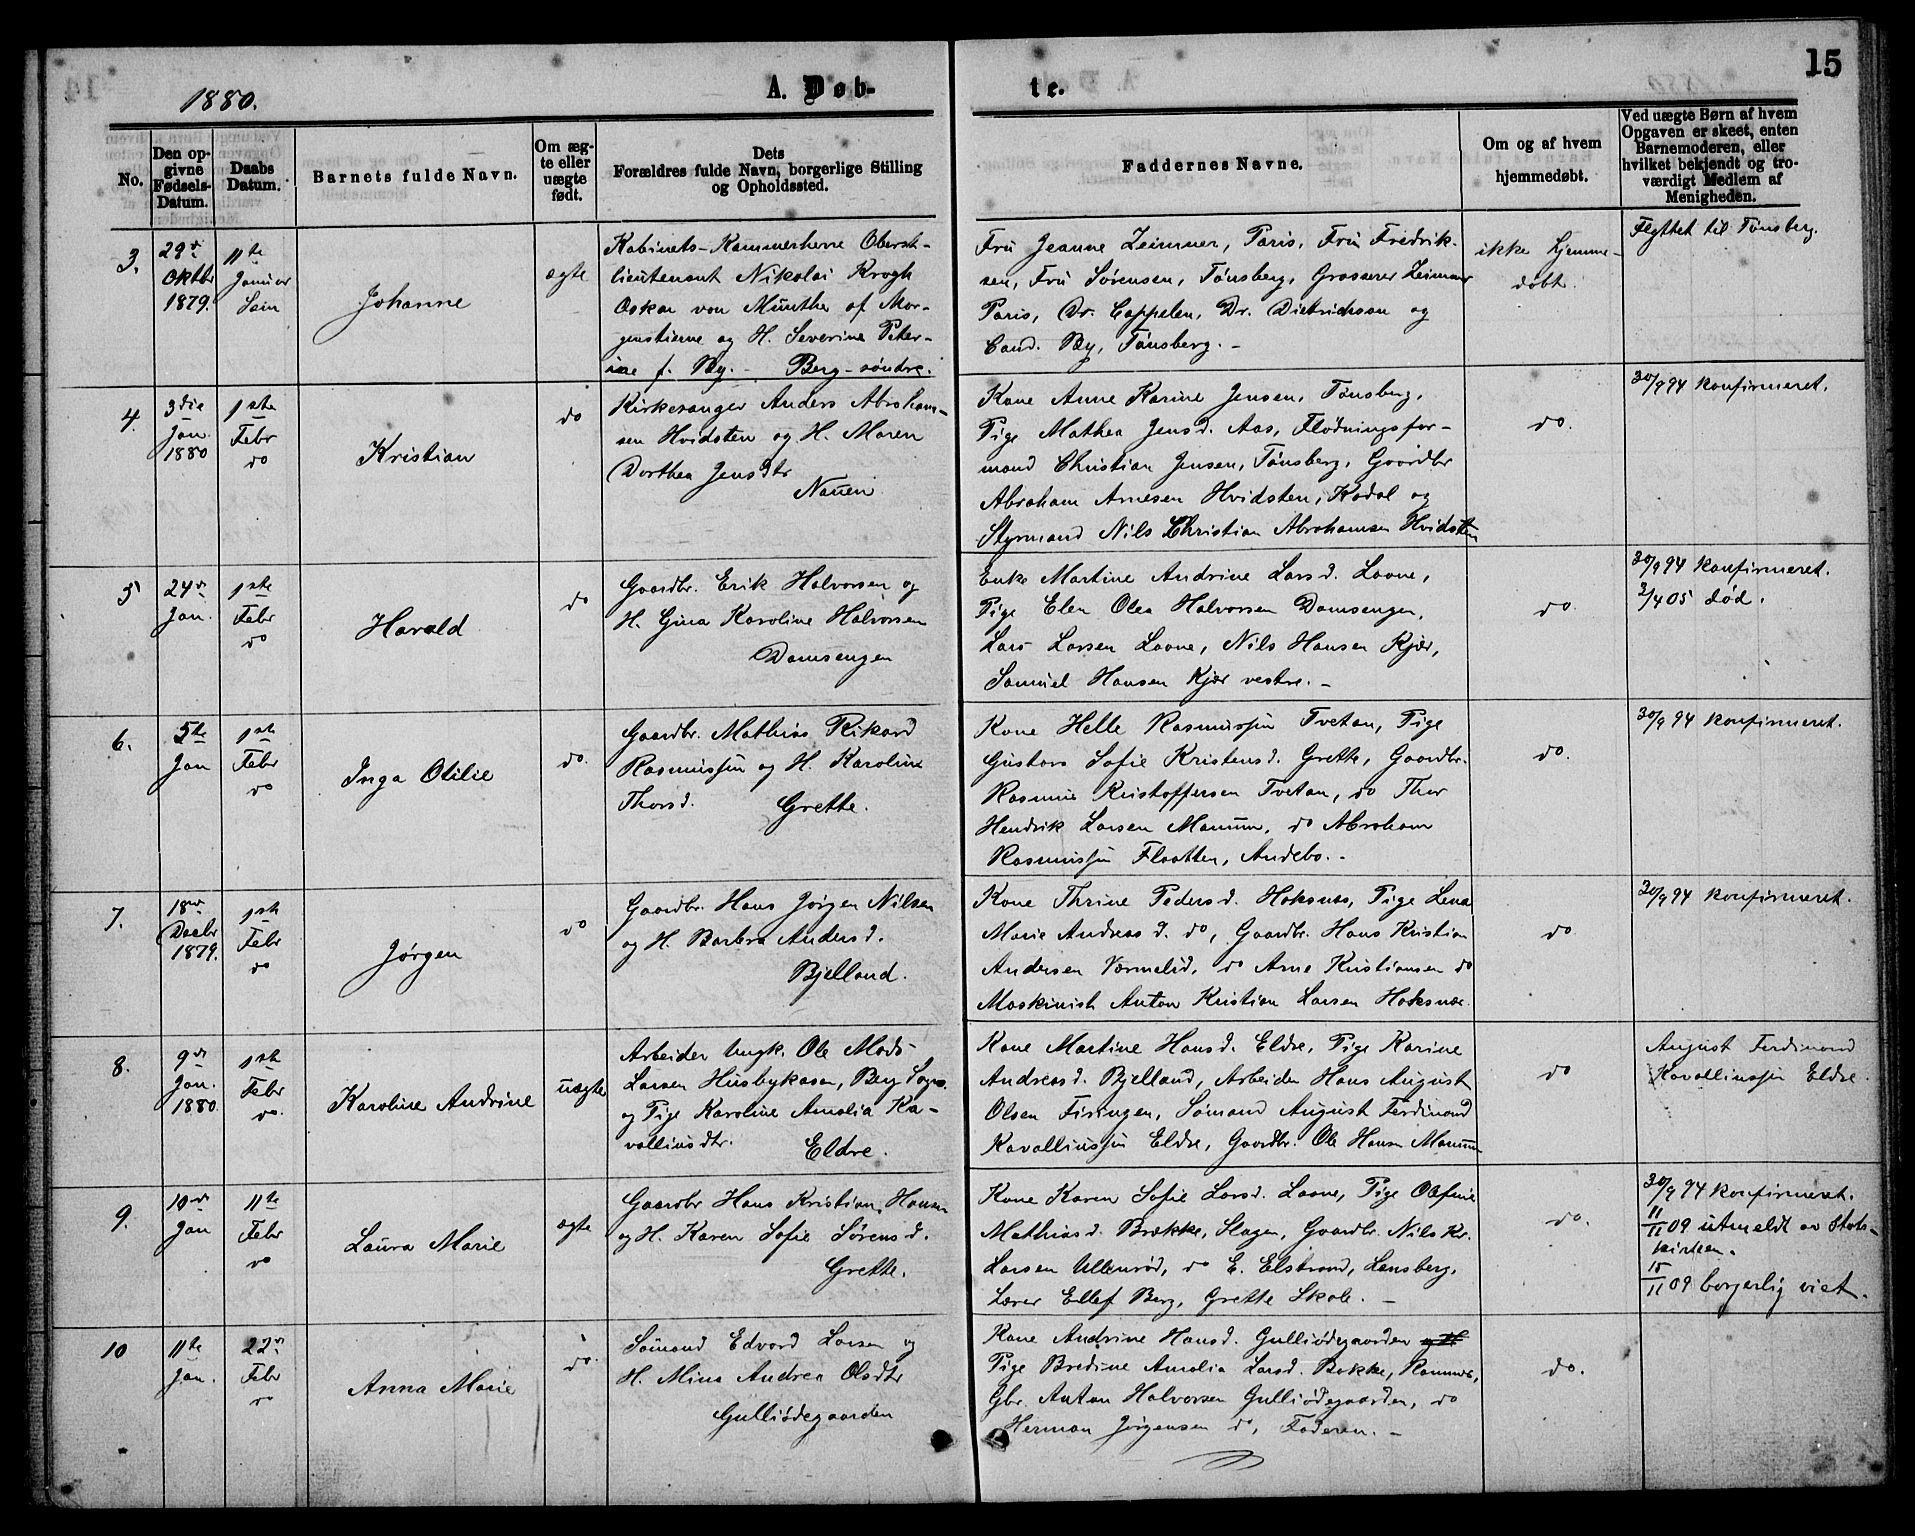 15
1880.
A. Døb-
te.
No.
Den op-
givne
Fødsels-
Datum.
Daabs
Datum.
Barnets fulde Navn.
Om æg-
te eller
uægte
født.
Dets
Forældres fulde Navn, borgerlige Stilling
og Opholdssted.
Faddernes Navne.
Om og af hvem
hjemmedøbt.
Ved uægte Børn af hvem
Opgaven er skeet, enten
Barnemoderen, eller
hvilket bekjendt og tro-
værdigt Medlem af
Menigheden.
3.
29de
Oktbr
1879.
11te
Januar
Sem
Johanne
ægte
Kabinets-Kammerherre Oberst-
lieutenant Nikolai Krogh
Oskar von Munthe af Mor-
genstierne og H. Severine Peter-
ine f. By. - Berg-søndre.
Fru Jeanne Zeimmer, Paris, Fru Fredrik-
sen, Fru Sørensen, Tønsberg, Grosserer Zeimmer
Paris, Dr. Cappelen, Dr. Dietrichson og
Cand. By, Tønsberg. -
ikke hjemme-
døbt.
Flyttet til Tønsberg.
4.
3die
Jan.
1880
1ste
Febr
do
Kristian
do
Kirkesanger Anders Abraham-
sen Hvidsten og H. Maren
Dorthea Jensdtr
Nauen
Kone Anne Karine Jensen, Tønsberg,
Pige Mathea Jensd. Aas, Flødningsfor-
mand Christian Jensen, Tønsberg, Gaardbr
Abraham Arnesen Hvidsten, Kodal og
Styrmand Nils Christian Abrahamsen Hvidsten
do.
30/9 94 konfirmeret.
5
24de
Jan.
1ste
Febr
do
Harald
do
Gaardbr. Erik Halvorsen og
H. Gina Karoline Halvorsen
Damsengen
Enke Martine Andrine Larsd. Laane,
Pige Elen Olea Halvorsen Damsengen,
Lars Larsen Laane, Nils Hansen Kjær,
Samuel Hansen Kjær vestre. -
do.
30/9 94 konfirmeret.
2/4 05 død.
6.
5te
Jan
1ste
Febr
do
Inga Otilie
do.
Gaardbr. Mathias Rikard
Rasmussen og H. Karoline
Thorsd. Grette.
Kone Helle Rasmussen Tvetan, Pige
Gustava Sofie Kristensd. Grette, Gaardbr.
Rasmus Kristoffersen Tvetan, do Thor
Hendrik Larsen Manum, do Abraham
Rasmussen Flaatten, Andebo. -
do.
30/9 94 konfirmeret.
7.
18de
Decbr
1879.
1ste
Febr
do
Jørgen
do
Gaardbr. Hans Jørgen Nilsen
og H. Barbra Andersd.
Bjelland.
Kone Thrine Pedersd. Hoksnes, Pige Lena
Marie Andreasd. do, Gaardbr. Hans Kristian
Andersen Vermelid, do Arne Kristiansen do
Maskinist Anton Kristian Larsen Hoksnæs.
do
30/9 94 konfirmeret.
8.
9de
Jan.
1880
1ste
Febr
do.
Karoline Andrine
uægte
Arbeider Ungk. Ole Mads
Larsen Husbykasen, Berg Sogn
og Pige Karoline Amalia Ka-
valliusdtr. Eldre.
Kone Martine Hansd. Eldre, Pige Karine
Andreasd. Bjelland, Arbeider Hans August
Olsen Firingen, Sømand August Ferdinand
Kavalliussen Eldre, Gaardbr. Ole Hansen Manum
do
August Ferdinand
Kavalliussen Eldre.
9.
10de
Jan
11te
Febr
do
Laura Marie
ægte
Gaardbr Hans Kristian Hansen
og H. Karen Sofie Sørensd.
Grette.
Kone Karen Sofie Larsd. Laane, Pige Olefine
Mathiasd. Brække, Slagen, Gaardbr. Nils Kr.
Larsen Ullenrød, do E. Elstrand, Lensberg,
Lærer Ellef Berg, Grette Skole. -
do.
30/9 94 konfirmeret.
11/11 09 utmeldt av Stats-
kirken.
15/11 09 borgerlig viet.
10
11te
Jan.
22de
Febr
do
Anna Marie
do.
Sømand Edvard Larsen og
H. Mina Andrea Olsdtr
Gulliødegaarden
Kone Andrine Hansd. Gulliødegaarden
Pige Bredine Amalia Larsd. Bakke, Ramnes,
Gbr. Anton Halvorsen Gulliødegaarden, do
Herman Jørgensen do, Faderen. -
do.